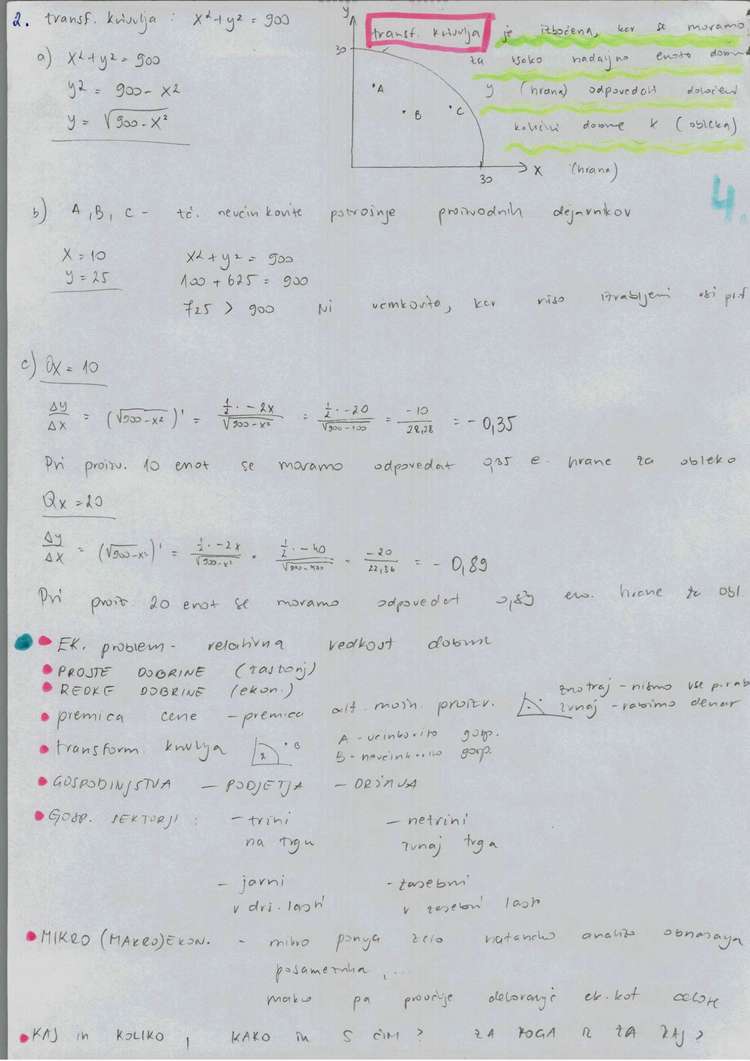 2. transf. krivulja : x² + y² = 900
y
transf. krivulja je izbočena, ker se moramo
za vsako nadaljno enoto dobrine
y (hrana) odpovedati določeni
količini dobrine x (obleka)
a) x² + y² = 900
y² = 900 - x²
y = √900 - x²
30
A
B
C
30
x (hrana)
4.
b) A, B, C - tč. neučinkovite potrošnje proizvodnih dejavnikov
x = 10 x² + y² = 900
y = 25 100 + 625 = 900
725 > 900 Ni učinkovito, ker niso izrabljeni vsi p.f
c) Qx = 10
Δy/Δx = (√900-x²)' = ½ · -2x / √900-x² = ½ · -20 / √900-100 = -10 / 28,28 = - 0,35
Pri proizv. 10 enot se moramo odpovedat 0,35 e. hrane za obleko
Qx = 20
Δy/Δx = (√900-x²)' = ½ · -2x / √900-x² = ½ · -40 / √900-400 = -20 / 22,36 = - 0,89
Pri proiz. 20 enot se moramo odpovedat 0,89 en. hrane za obl.
EK. problem - relativna redkost dobrin
PROSTE DOBRINE (zastonj)
REDKE DOBRINE (ekon.)
premica cene - premica alt. možn. proizv. znotraj - nismo vse porab
zunaj - rabimo denar
transform. krivulja A B A - učinkovito gosp.
B - neučinkovito gosp.
GOSPODINJSTVA - PODJETJA - DRŽAVA
GOSP. SEKTORJI : - tržni - netržni
na trgu zunaj trga
- javni - zasebni
v drž. lasti v zasebni lasti
MIKRO (MAKRO) EKON. - mikro zelo natančno analizo obnašanja
posameznika, ...
makro pa proučuje delovanje ek. kot celote
KAJ in KOLIKO, KAKO in S ČIM? ZA KOGA IZ ZA KAJ?